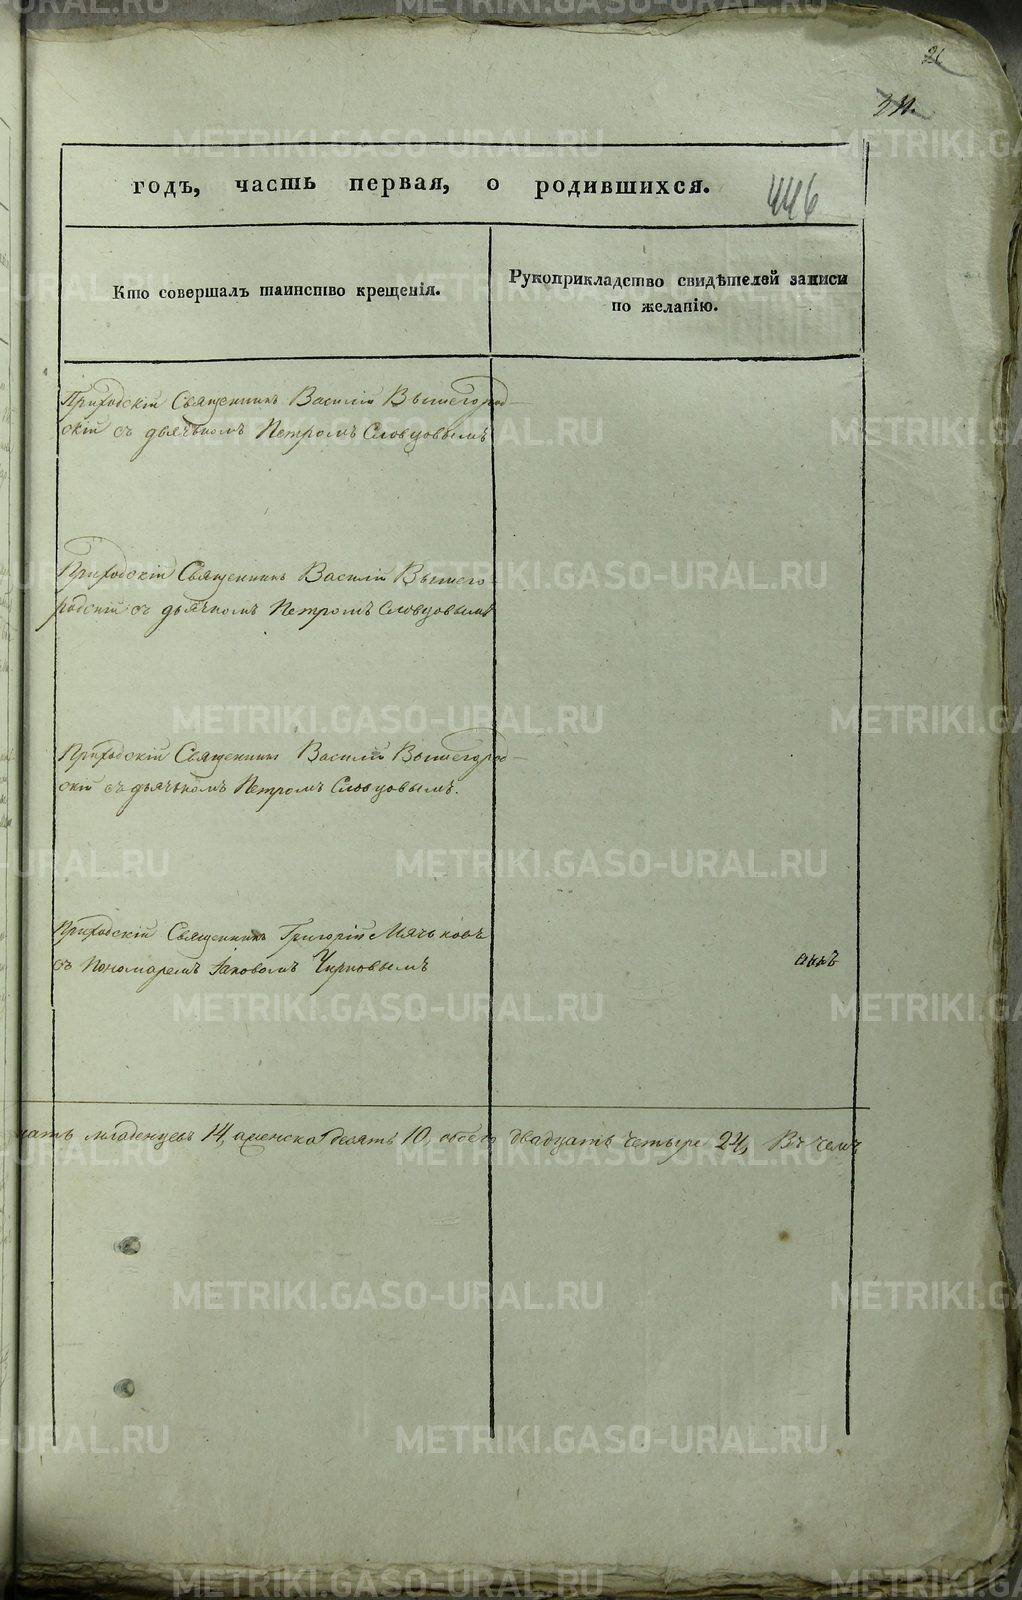 годъ, часть первая, о родившихся.
446
Кто совершалъ таинство крещенія.
Рукоприкладство свидѣтелей записи
по желанію.
Приходскій Священникъ Василій Вышегород-
скій съ дьячькомъ Петромъ Словцовымъ
Приходскій Священникъ Василій Вышего-
родскій съ дьячкомъ Петромъ Словцовымъ
Приходскій Священникъ Василій Вышегород-
скій съ дьячькомъ Петромъ Словцовымъ.
Приходскій Священникъ Григорій Мячьковъ
съ Пономаремъ Іаковомъ
цать младенцевъ 14, а женска десять 10, обоего двадцать четыре 24, Въ чемъ
METRIKI.GASO-URAL.RU